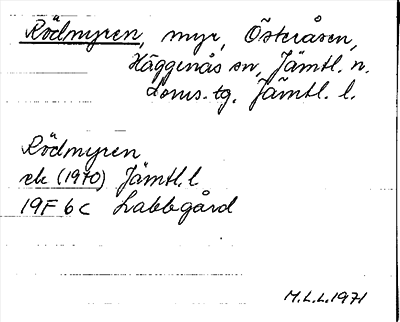 Rödmyren, myr, Österåsen,
Häggenås sn, Jämtl. n.
Loms. tg. Jämtl. l.
Rödmyren
ek (1970) Jämtl. l
19F 6c Labbgård
M.L.L. 1971